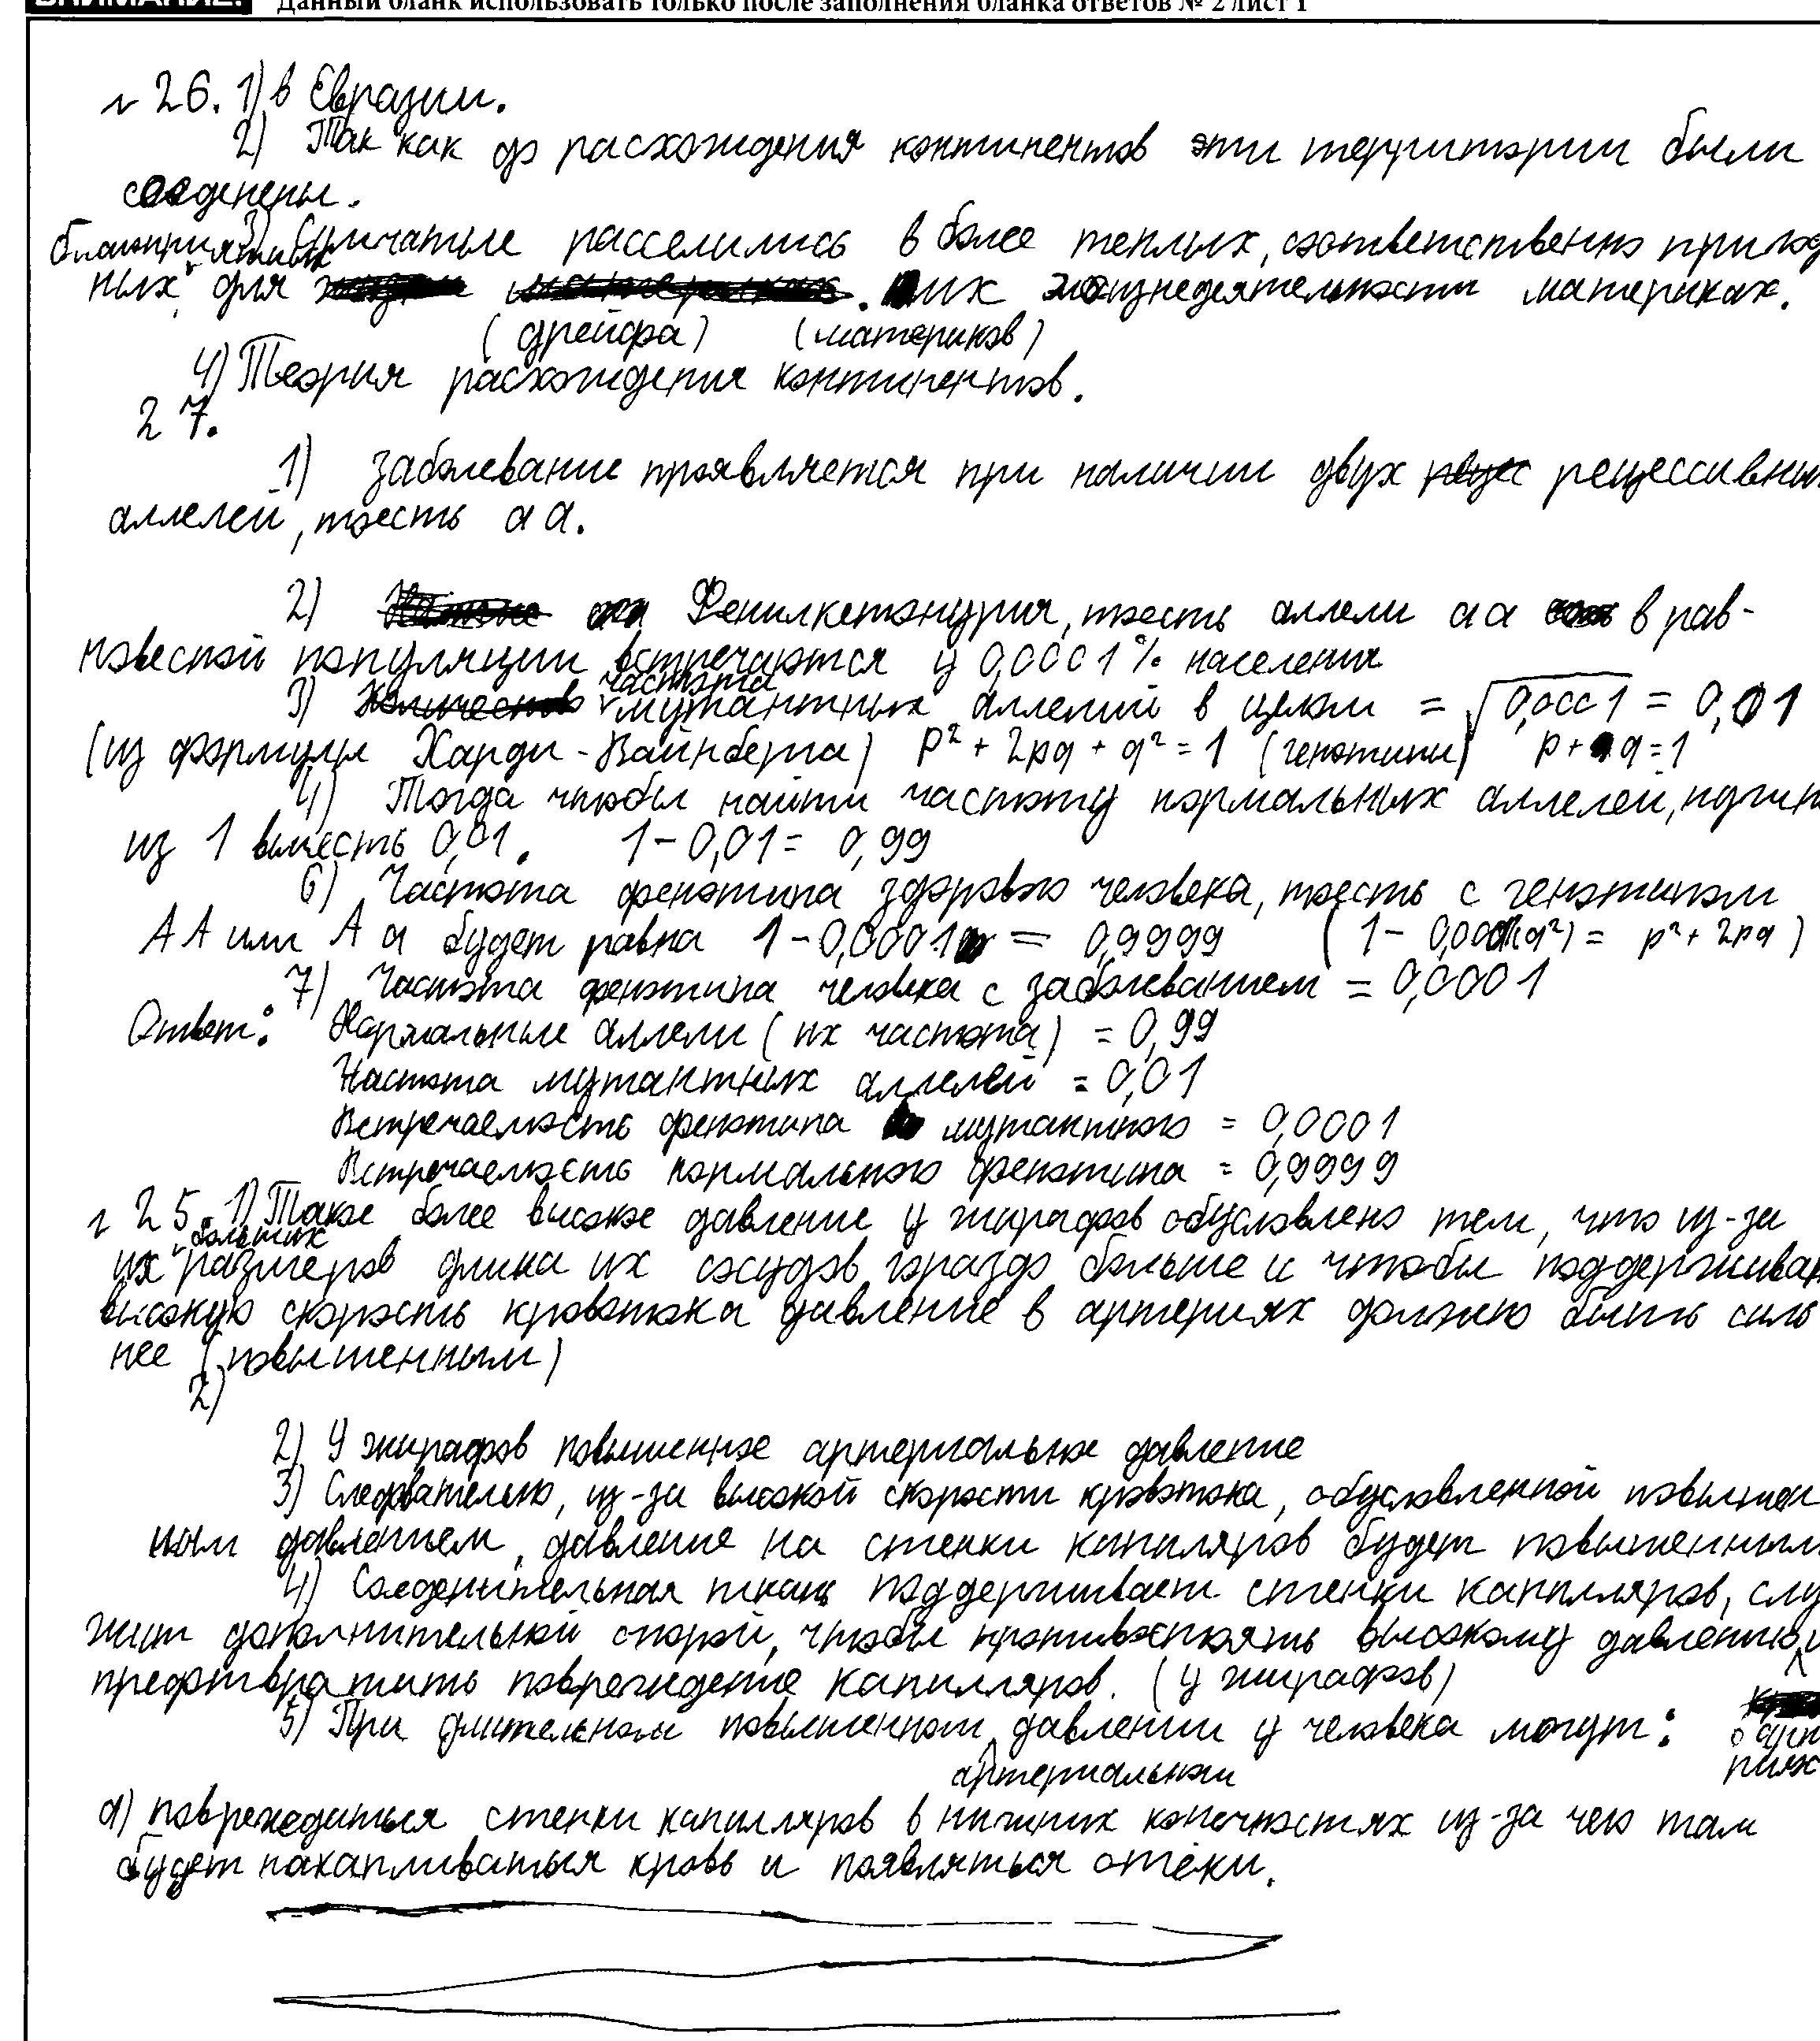 ВНИМАНИЕ! Данный бланк использовать только после заполнения бланка ответов № 2 лист 1
№ 26. 1) в Евразии.
2) Так как до расхождения континентов эти территории были
соеденены.
3) Сумчатые расселились в более теплых, соответственно пригод
ных, благоприятных для их жизнедеятельности материках.
(дрейфа) (материков)
4) Теория расхождения континентов.
27.
1) Заболевание проявляется при наличии двух рецессивных
аллелей, тоесть аа.
2) Фенилкетонурия, тоесть аллели аа в рав-
новесной популяции встречаются у 0,0001% населения
3) частота мутантных аллелий в целом = √0,0001 = 0,01
(из формулы Харди-Вайнберга) p² + 2pq + q² = 1 (генотипы) p + q = 1
4) Тогда чтобы найти частоту нормальных аллелей, нужно
из 1 вычесть 0,01. 1 - 0,01 = 0,99
6) Частота фенотипа здорового человека, тоесть с генотипом
АА или Аа будет равна 1 - 0,0001 = 0,9999 (1 - 0,0001(q²) = p² + 2pq)
7) Частота фенотипа человека с заболеванием = 0,0001
Ответ: Нормальные аллели (их частота) = 0,99
Частота мутантных аллелей = 0,01
Встречаемость фенотипа мутантного = 0,0001
Встречаемость нормального фенотипа = 0,9999
№ 25. 1) Такое более высокое давление у жирафов обусловлено тем, что из-за
их больших размеров длина их сосудов гораздо больше и чтобы поддерживать
высокую скорость кровотока давление в артериях должно быть силь
нее (повышенным)
2)
2) У жирафов повышенное артериальное давление
3) Следовательно, из-за высокой скорости кровотока, обусловленной повышен
ным давлением, давление на стенки капиляров будет повышенным.
4) Соеденительная ткань поддерживает стенки капилляров, слу
жит дополнительной опорой, чтобы противостоять высокому давлению и
предотвратить повреждение капилляров. (у жирафов)
5) При длительном повышенном давлении у человека могут:
артериальном
а) повреждаться стенки капилляров в нижних конечностях из-за чего там
будет накапливаться кровь и появляться отёки.